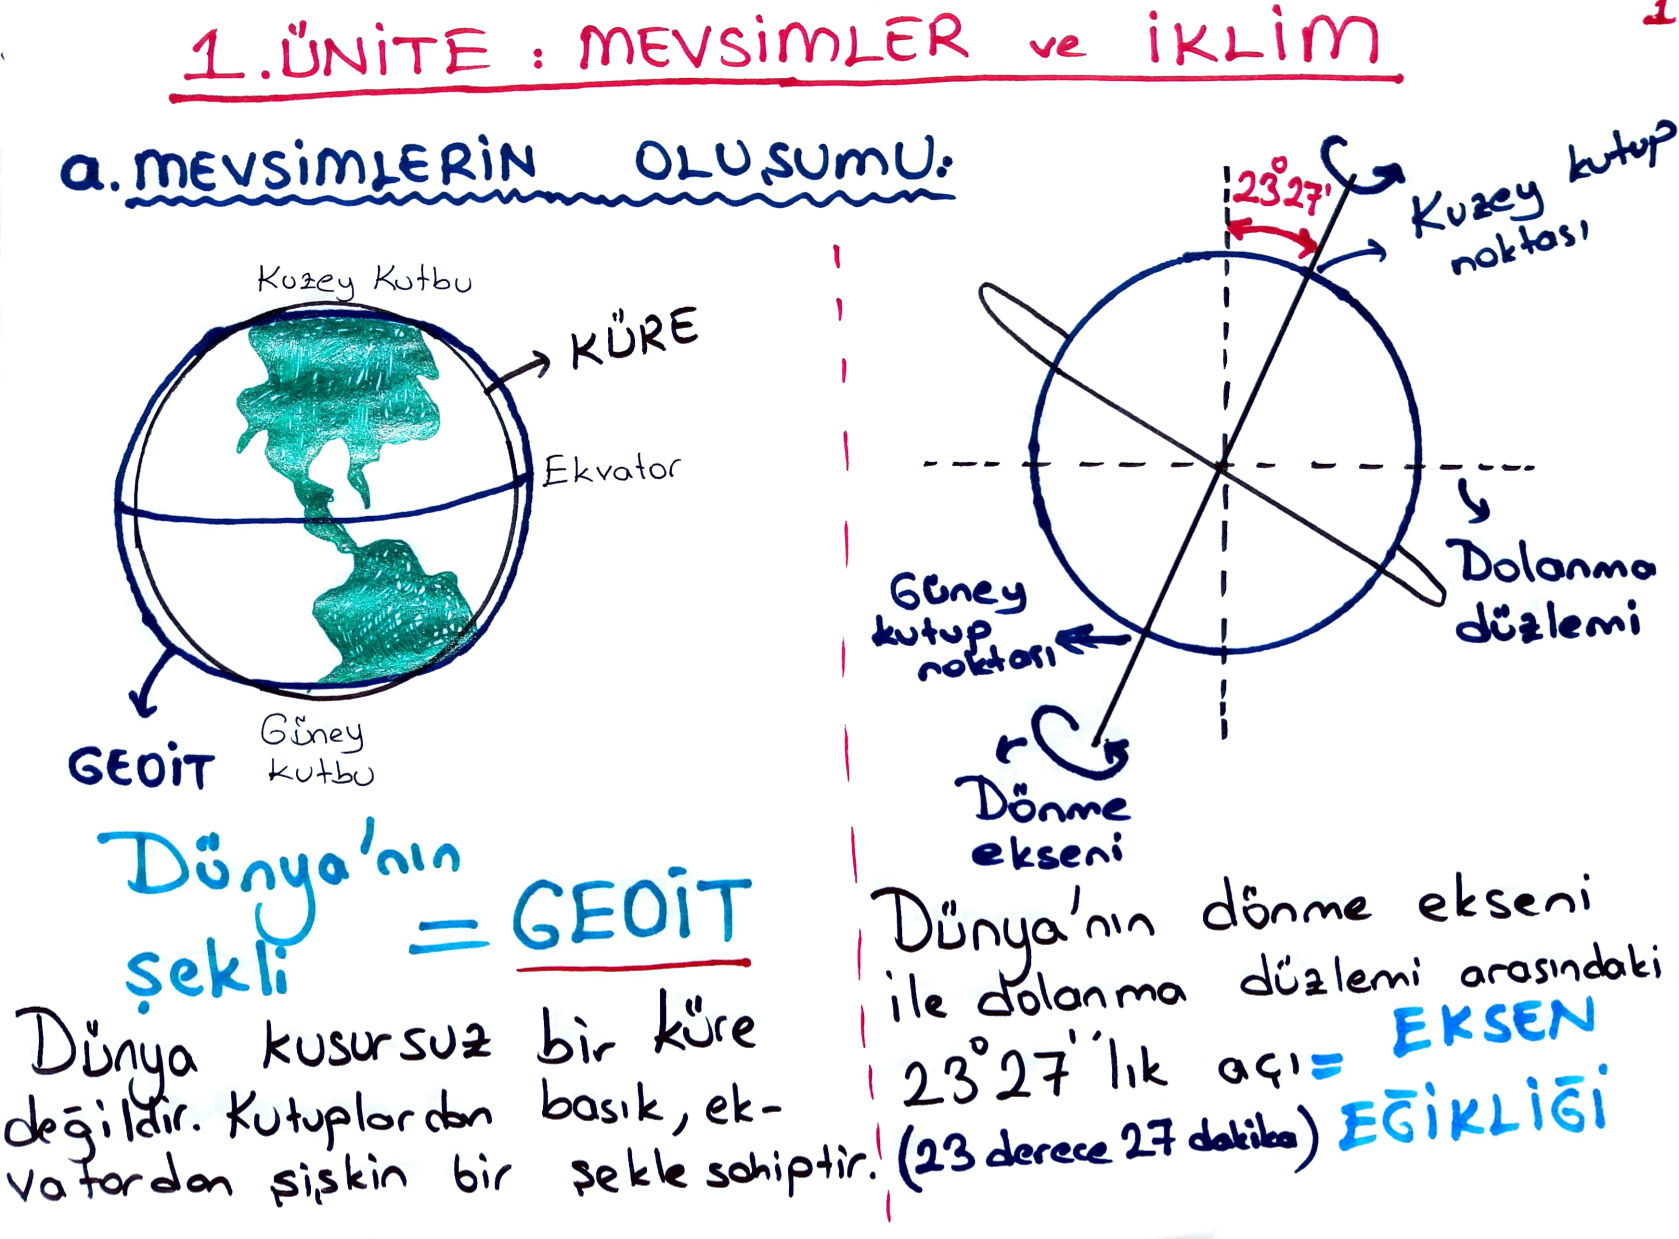 1
1. ÜNİTE : MEVSİMLER ve İKLİM
a. MEVSİMLERİN OLUŞUMU:
Kuzey Kutbu
KÜRE
Ekvator
GEOİT
Güney
kutbu
Dünya'nın
şekli = GEOİT
Dünya kusursuz bir küre
değildir. Kutuplardan basık, ek-
vatordan şişkin bir şekle sahiptir.
23°27'
Kuzey kutup
noktası
Dolanma
düzlemi
Güney
kutup
noktası
Dönme
ekseni
Dünya'nın dönme ekseni
ile dolanma düzlemi arasındaki
23°27''lık açı = EKSEN
(23 derece 27 dakika) EĞİKLİĞİ